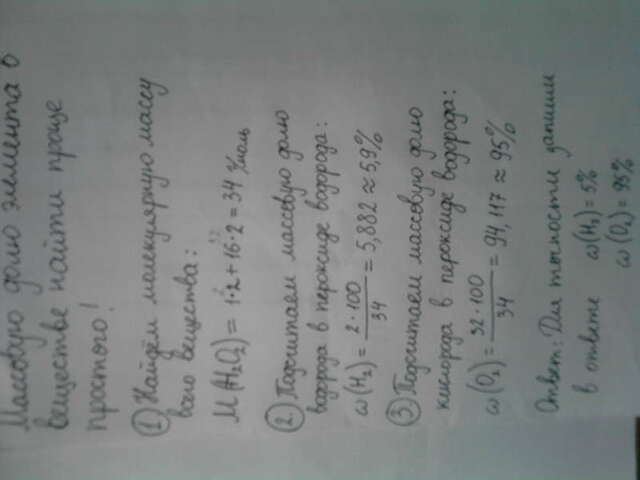 Массовую долю элемента в
веществе найти проще
простого!
① Найдём молекулярную массу
всего вещества:
M(H₂O₂) = 1·2 + 16·2 = 34 г/моль
② Подсчитаем массовую долю
водорода в пероксиде водорода:
ω(H₂) = 2·100/34 = 5,882 ≈ 5,9%
③ Подсчитаем массовую долю
кислорода в пероксиде водорода:
ω(O₂) = 32·100/34 = 94,117 ≈ 95%
Ответ: Для точности запишем
в ответе ω(H₂) = 5%
ω(O₂) = 95%